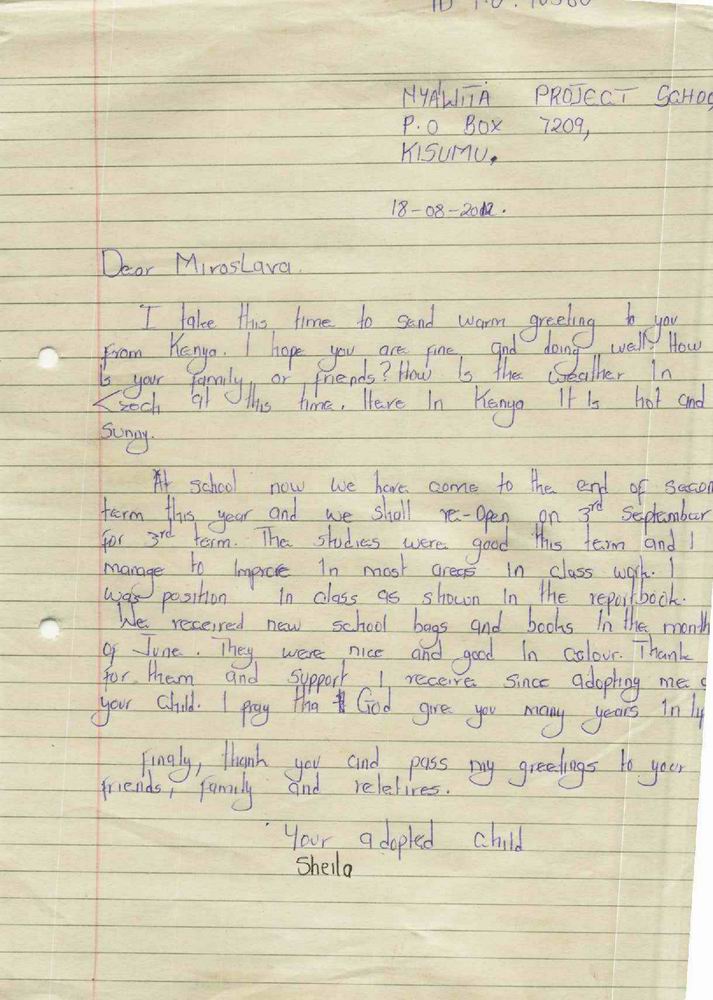 NYAWITA PROJECT SCHOO
P.O BOX 7209,
KISUMU.
18-08-2012.
Dear Miroslava.
I take this time to send warm greeting to you
from Kenya. I hope you are fine and doing well? How
Is your family or friends? How Is the weather In
Czech at this time. Here In Kenya It Is hot and
Sunny.
At school now we have come to the end of secon
term this year and we shall re-Open on 3rd September
for 3rd term. The studies were good this term and I
manage to Improve In most areas In class work. I
was position In class as shown In the reportbook.
We received new school bags and books In the month
of June. They were nice and good In colour. Thank
for them and support I receive since adopting me a
your child. I pray tha t God give you many years In lif
Finaly, thank you and pass my greetings to your
friends, family and reletives.
Your adopted child
Sheila